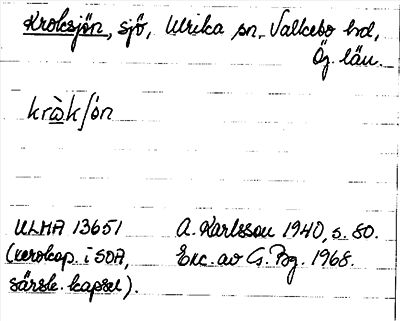 Kroksjön, sjö, Ulrika sn, Valkebo hd,
Ög. län.
kràkʃön
ULMA 13651 A. Karlsson 1940, s. 80.
(xerokop. i SOA, Exc. av G. Bg. 1968.
särsk. kapsel).